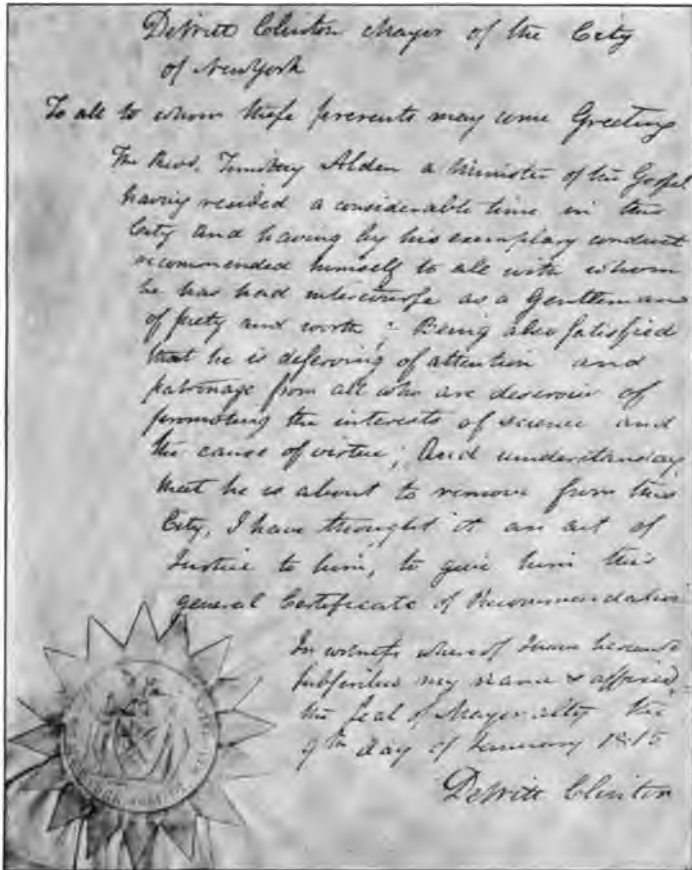 DeWitt Clinton Mayor of the City
of New York
To all to whom these presents may come Greeting
The Revd. Timothy Alden a Minister of the Gospel
having resided a considerable time in this
City and having by his exemplary conduct
recommended himself to all with whom
he has had intercourse as a Gentleman
of piety and worth; Being also satisfied
that he is deserving of attention and
patronage from all who are desirous of
promoting the interests of science and
the cause of virtue; And understanding
that he is about to remove from this
City, I have thought it an act of
Justice to him, to give him this
general Certificate of Recommendation
In witness whereof I have hereunto
subscribed my name & affixed
the seal of Mayoralty the
9th day of January 1815
DeWitt Clinton